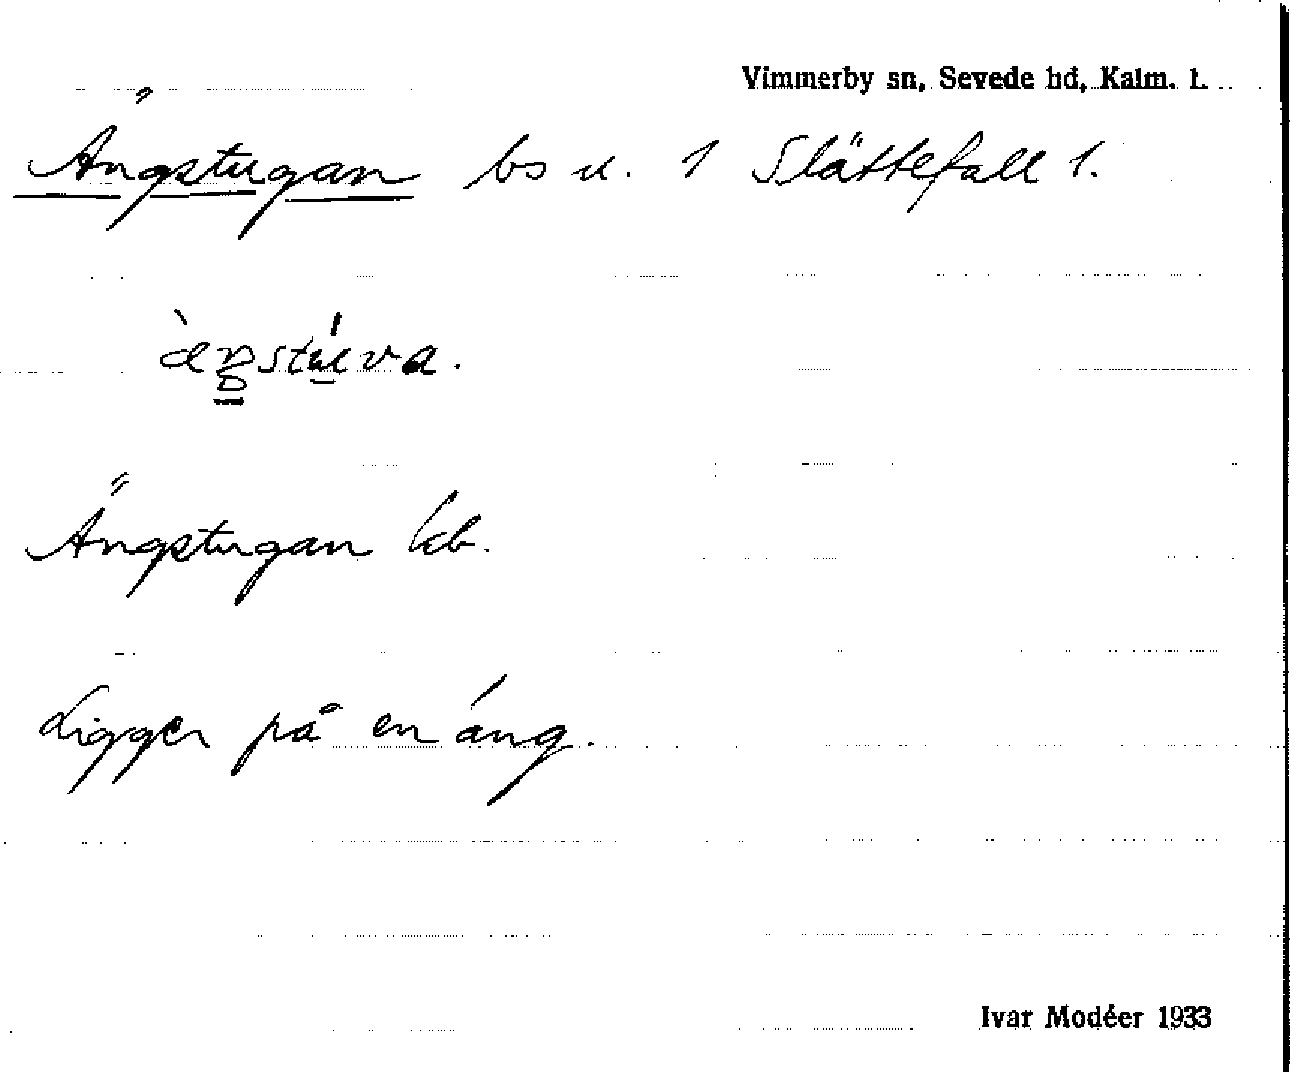 Vimmerby sn, Sevede hd, Kalm. l.
Ängstugan bs u. 1 Slättefall 1.
Ängstugan kb.
Ligger på en äng.
Ivar Modéer 1933